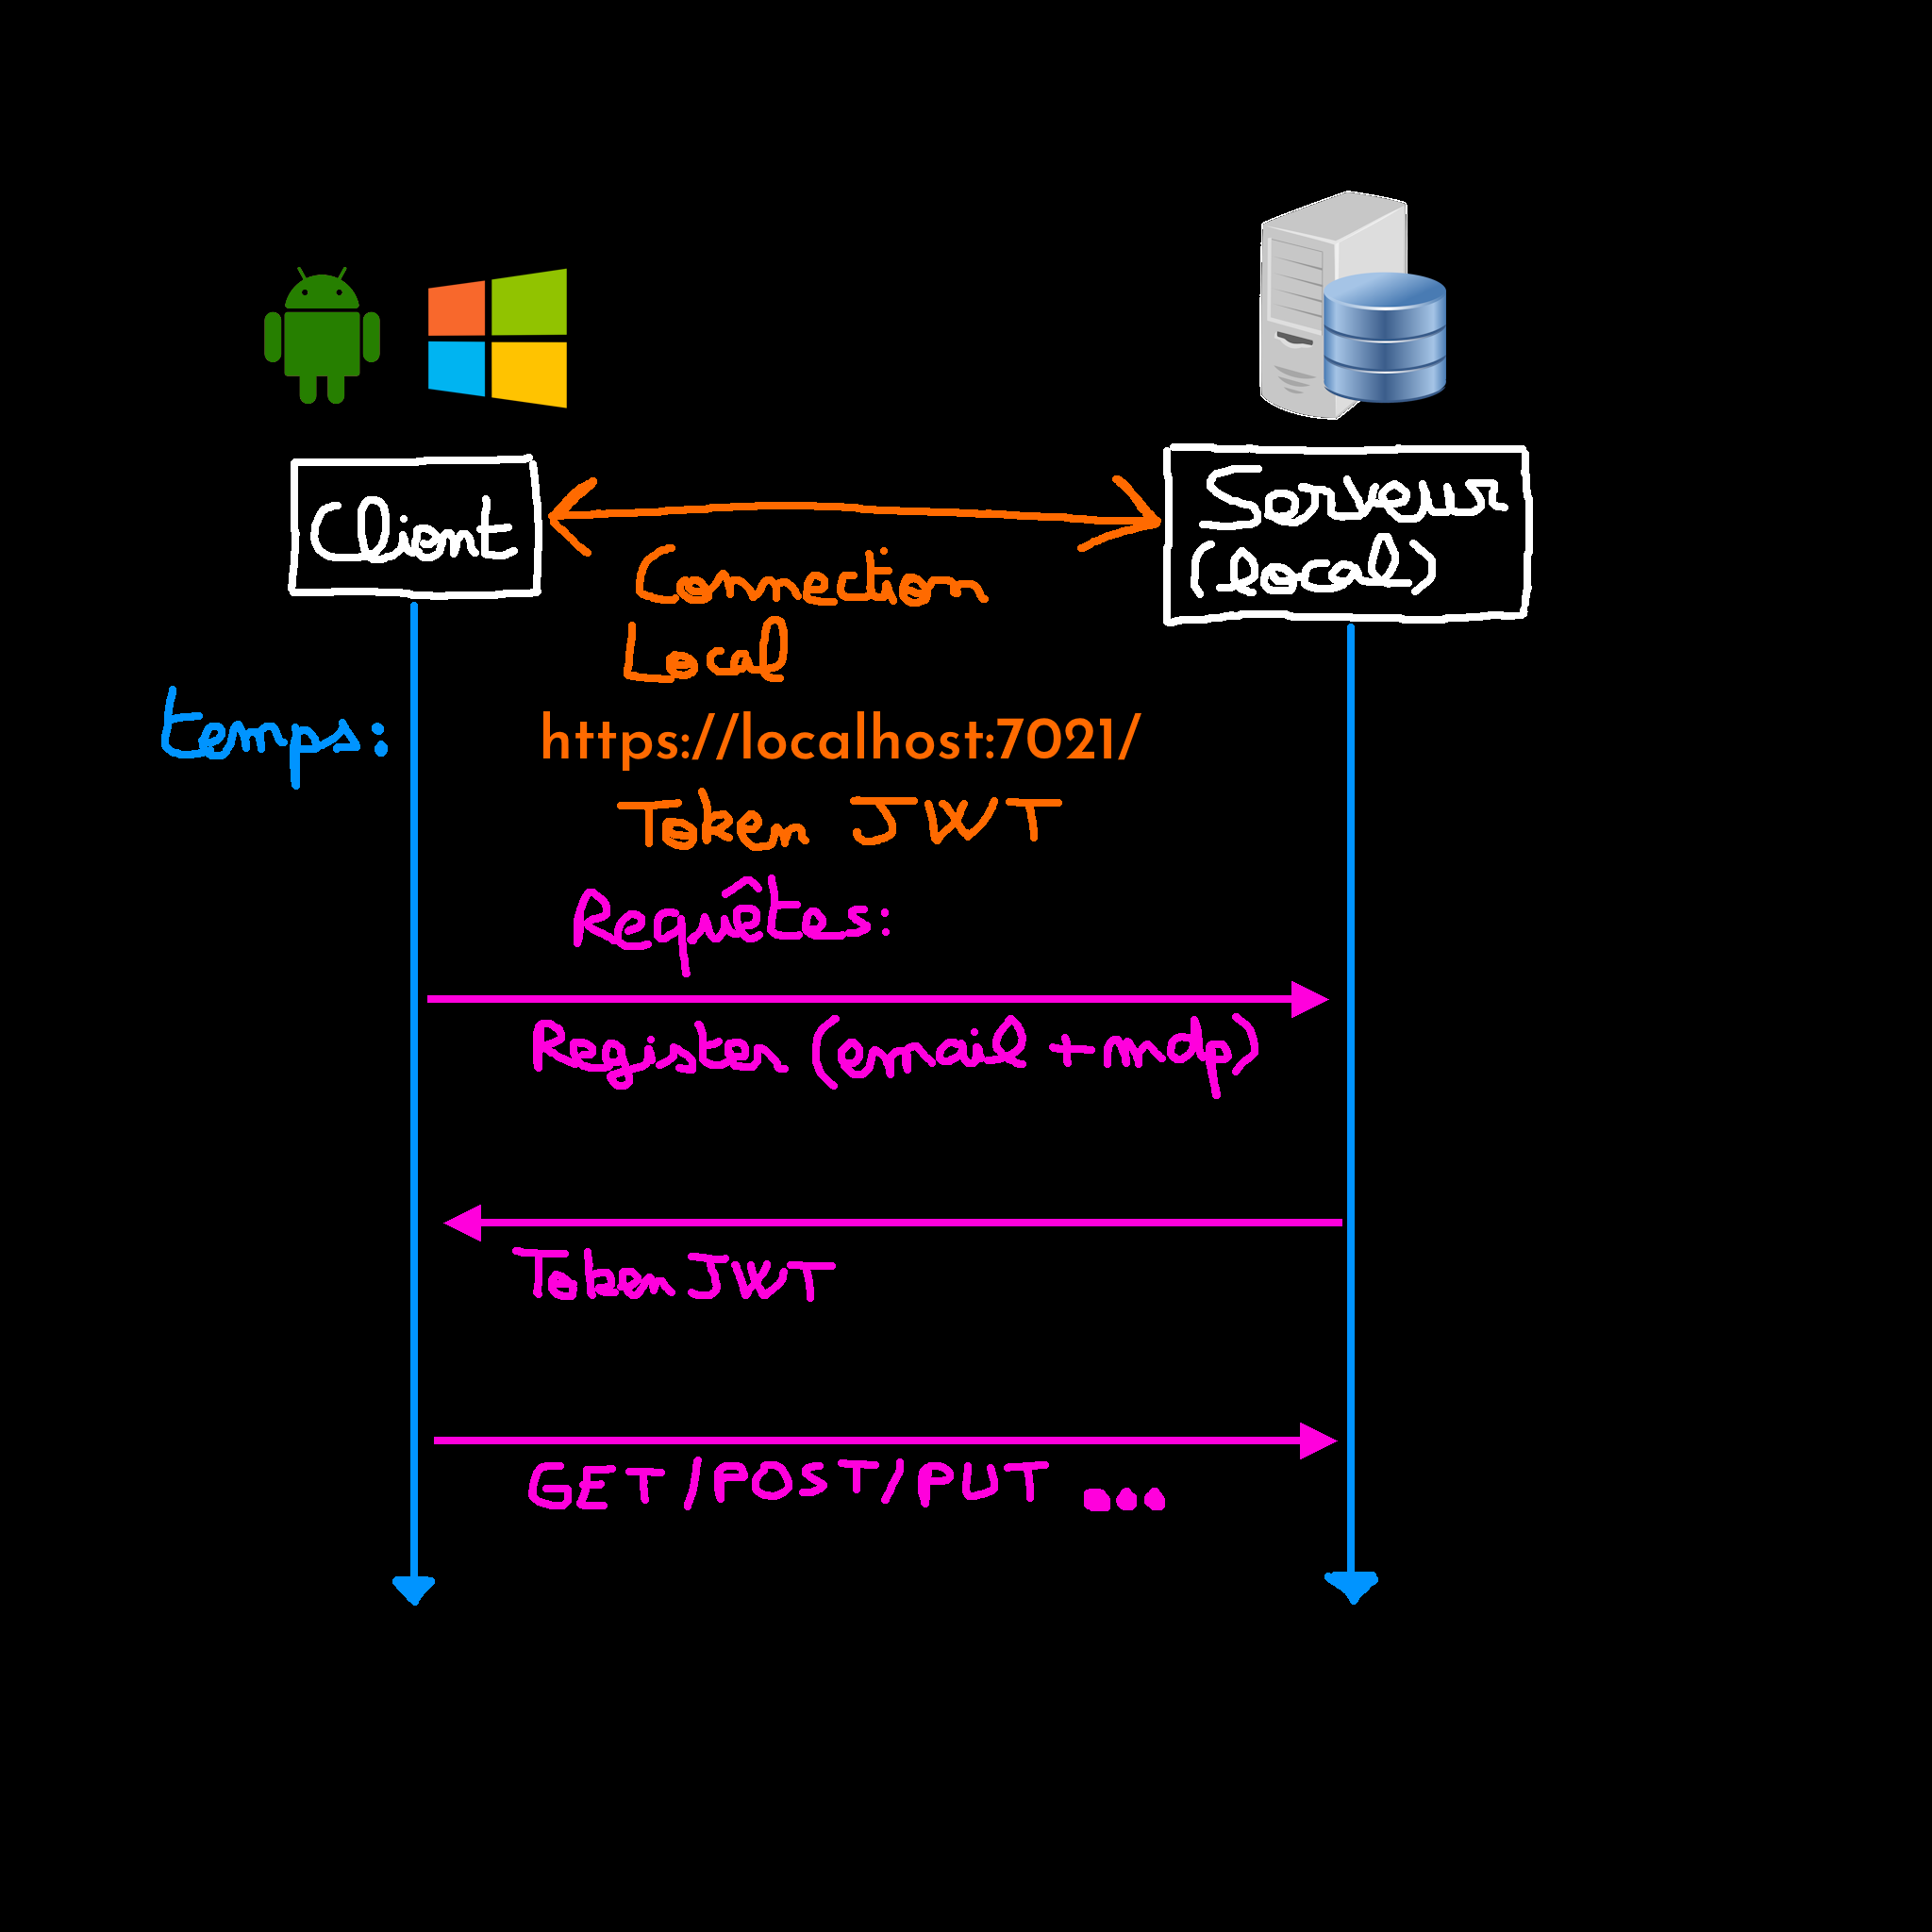 Client
Serveur
(local)
Connection
Local
temps:
https://localhost:7021/
Token JWT
Requêtes:
Register (email + mdp)
Token JWT
GET/POST/PUT ...